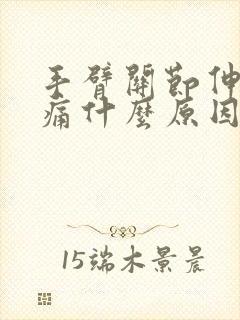 手臂關節伸
痛什麼原因
15端木景晨